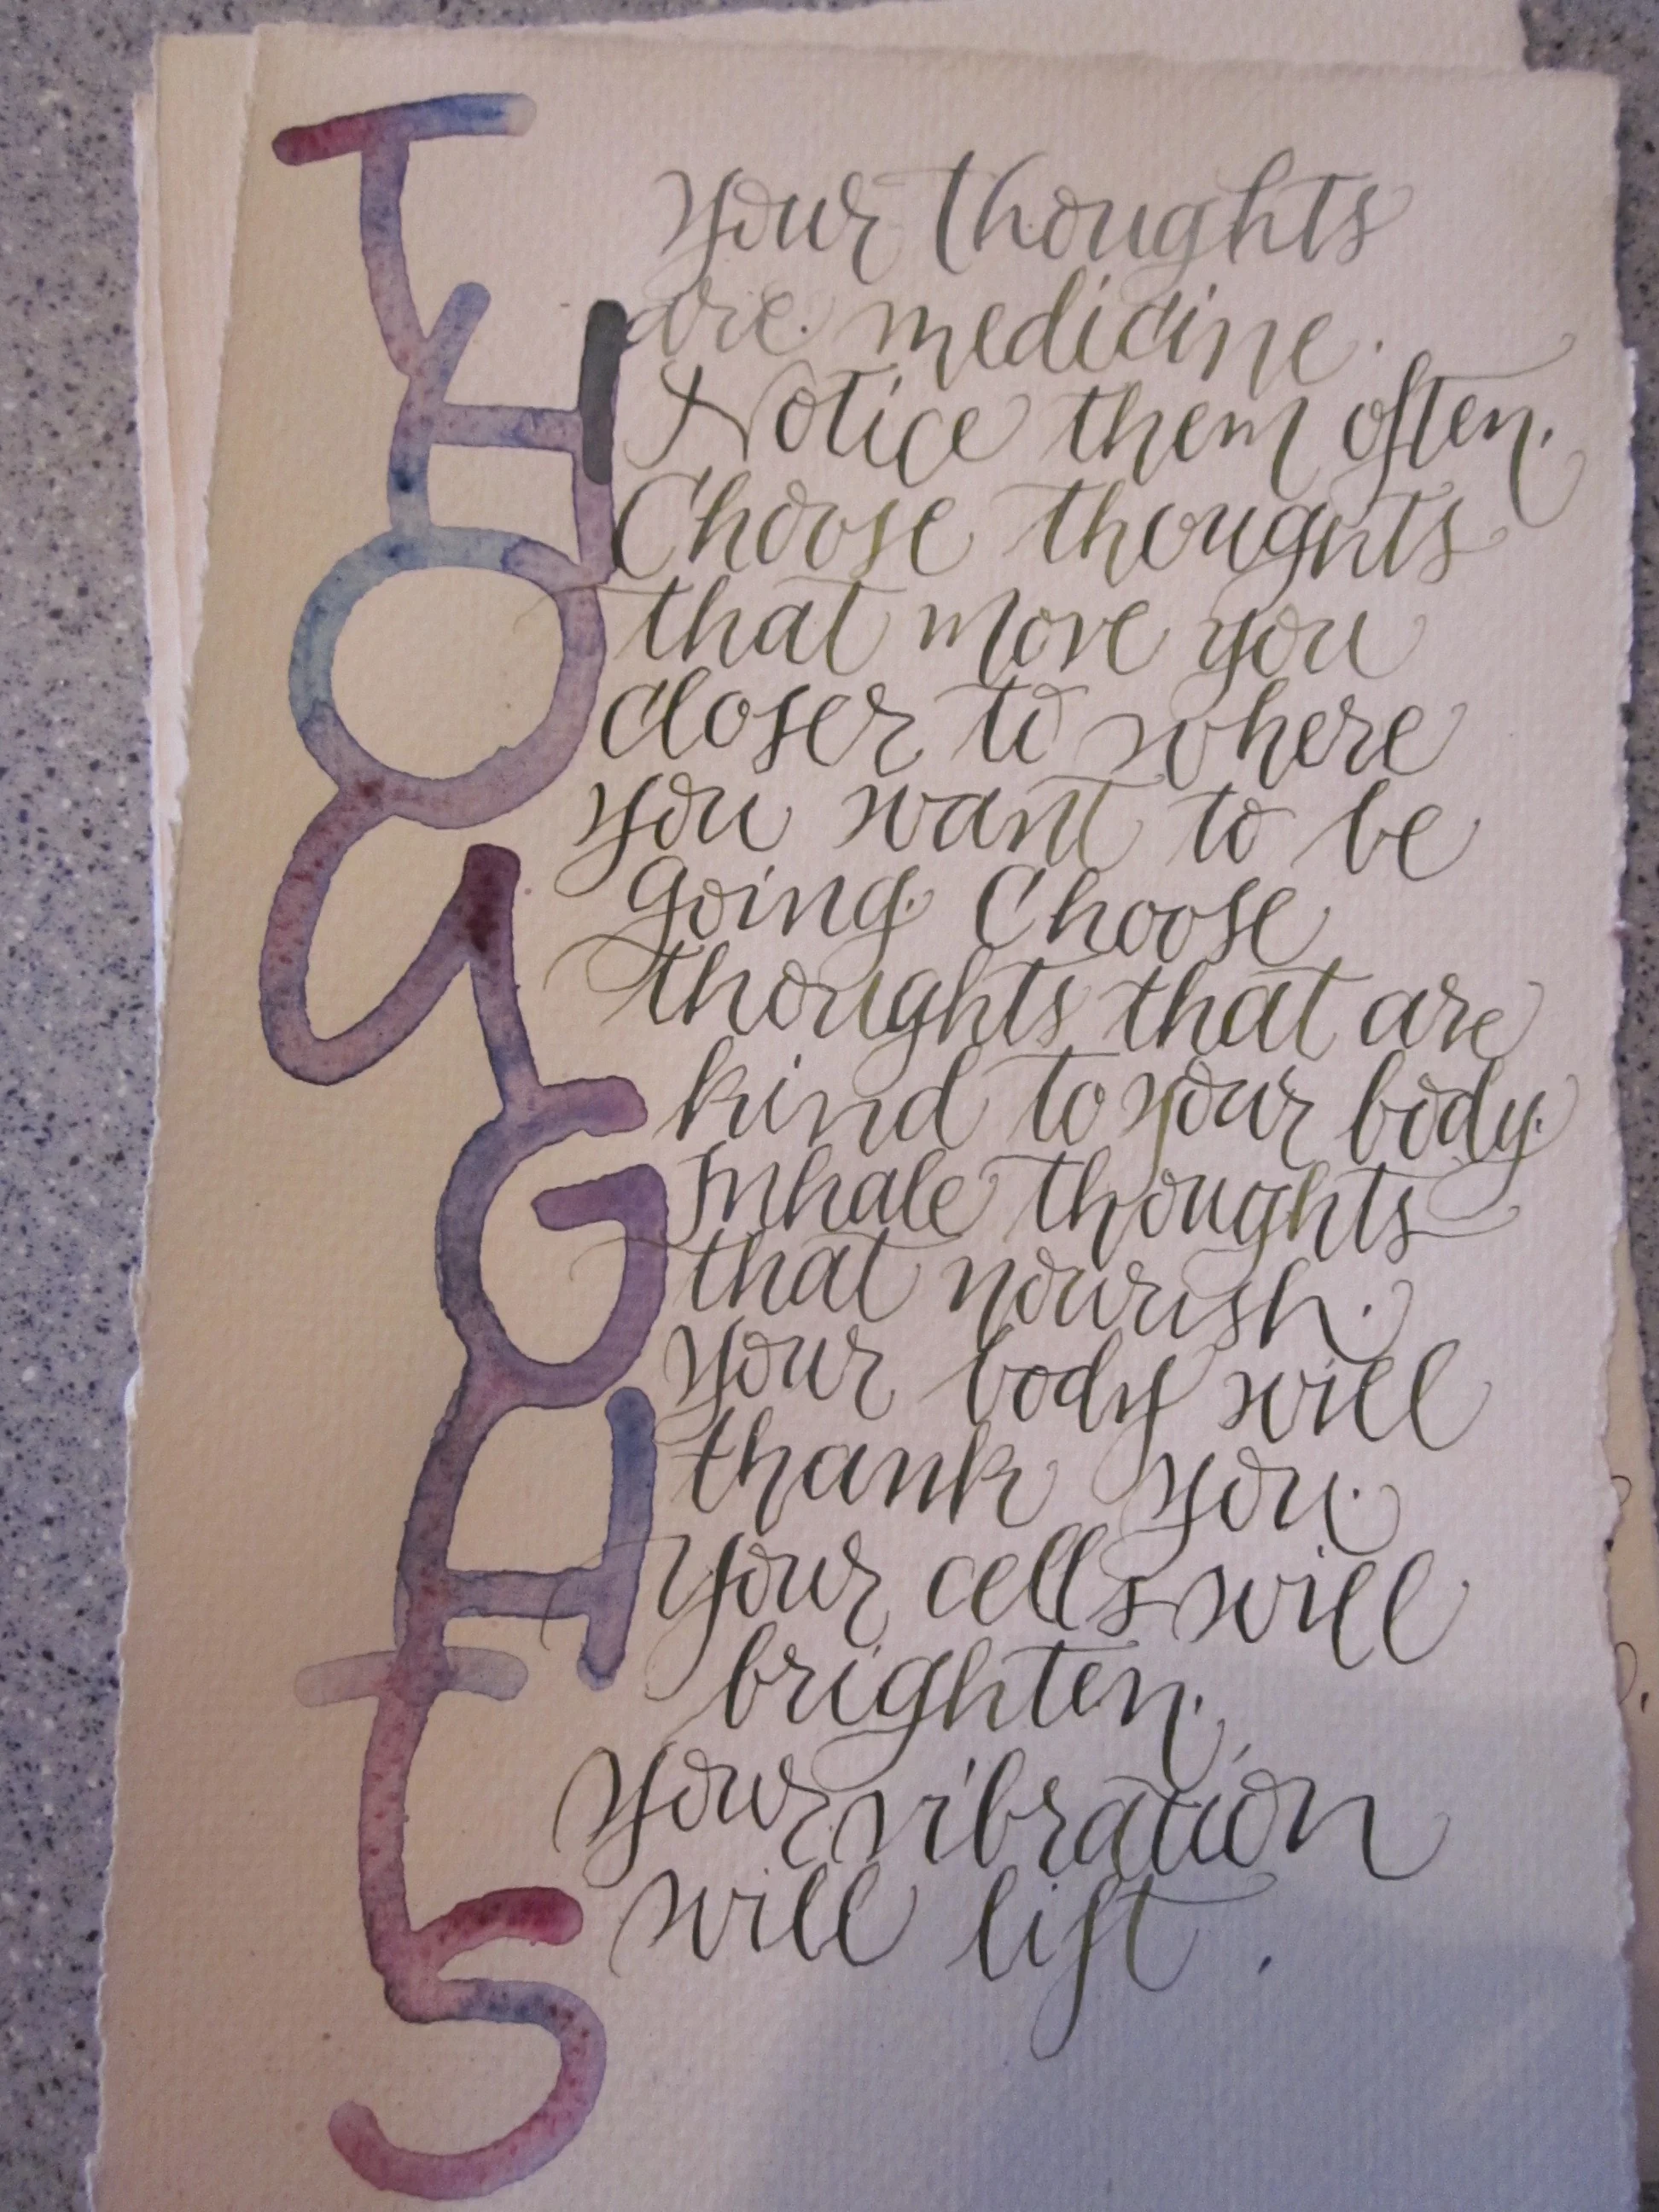 THOUGHTS
Your thoughts
are medicine.
Notice them often.
Choose thoughts
that move you
closer to where
you want to be
going. Choose
thoughts that are
kind to your body.
Inhale thoughts
that nourish.
Your body will
thank you.
Your cells will
brighten.
Your vibration
will lift.